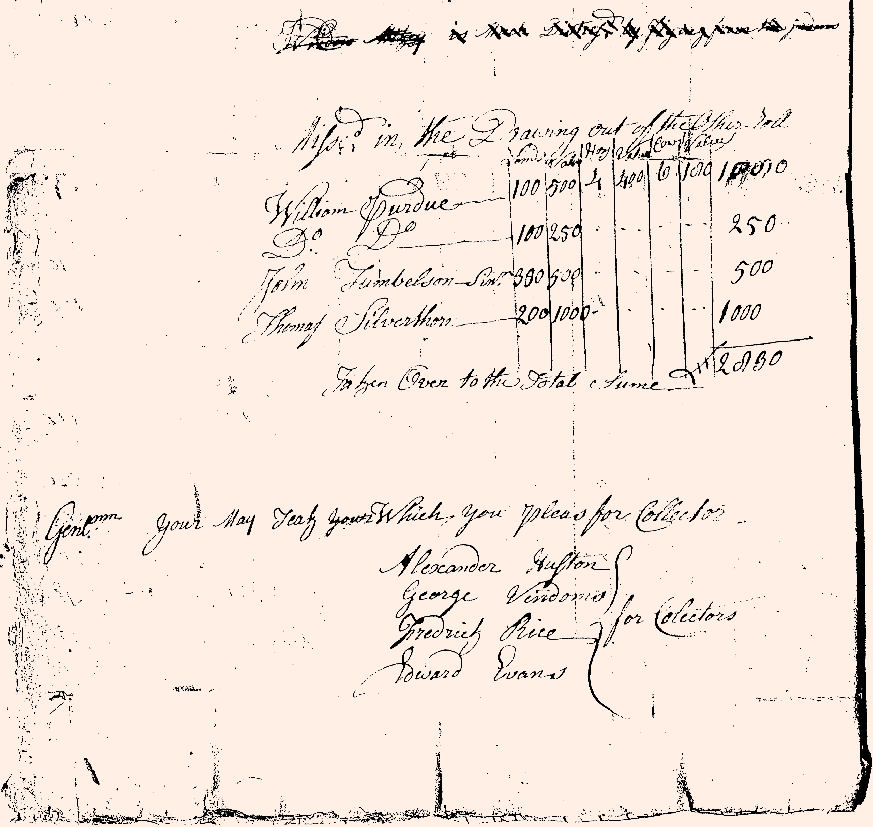 is
Miss:d in the Drawing out of the Other
Land Value Hors Value Cows Value
William Purdue 100 500 4 400 6 180 1080
Do Do 100 250 250
John Tumbelson Sinr 330 500 500
Thomas Silverthon 200 1000 1000
Taken Over to the Total Sume 2830
Gentmn your May Teak your Which you pleas for Collector
Alexander Huston
George Vindoms
Fredrick Rice for Colectors
Edward Evans